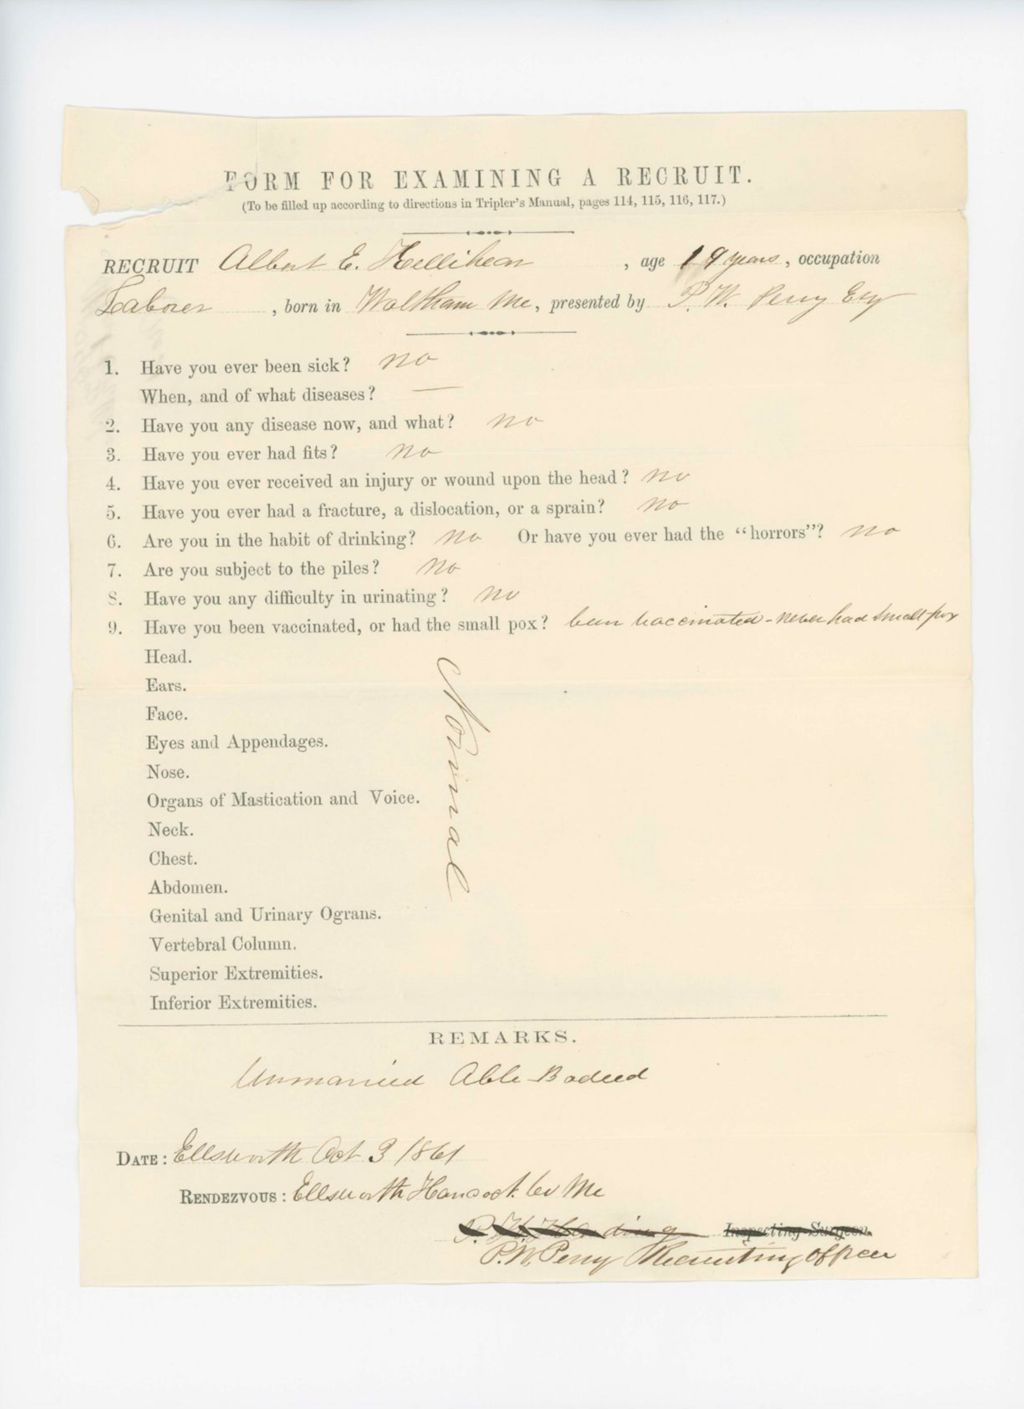 FORM FOR EXAMINING A RECRUIT.
(To be filled up according to directions in Tripler's Manual, pages 114, 115, 116, 117.)
RECRUIT Albert E. Hellihear , age 19 years , occupation
Laborer , born in Waltham Me , presented by P. W. Perry Esq
1. Have you ever been sick? no
When, and of what diseases? —
2. Have you any disease now, and what? no
3. Have you ever had fits? no
4. Have you ever received an injury or wound upon the head? no
5. Have you ever had a fracture, a dislocation, or a sprain? no
6. Are you in the habit of drinking? no Or have you ever had the "horrors"? no
7. Are you subject to the piles? no
8. Have you any difficulty in urinating? no
9. Have you been vaccinated, or had the small pox? been vaccinated - never had small pox
Head.
Ears.
Face.
Eyes and Appendages.
Nose.
Organs of Mastication and Voice.
Neck.
Chest.
Abdomen.
Genital and Urinary Ograns.
Vertebral Column.
Superior Extremities.
Inferior Extremities.
Normal
REMARKS.
Unmarried Able-Bodied
DATE: Ellsworth Oct 3 1861
RENDEZVOUS: Ellsworth Hancock Co Me
P. H. Harding Inspecting Surgeon.
P. W. Perry Recruiting Officer